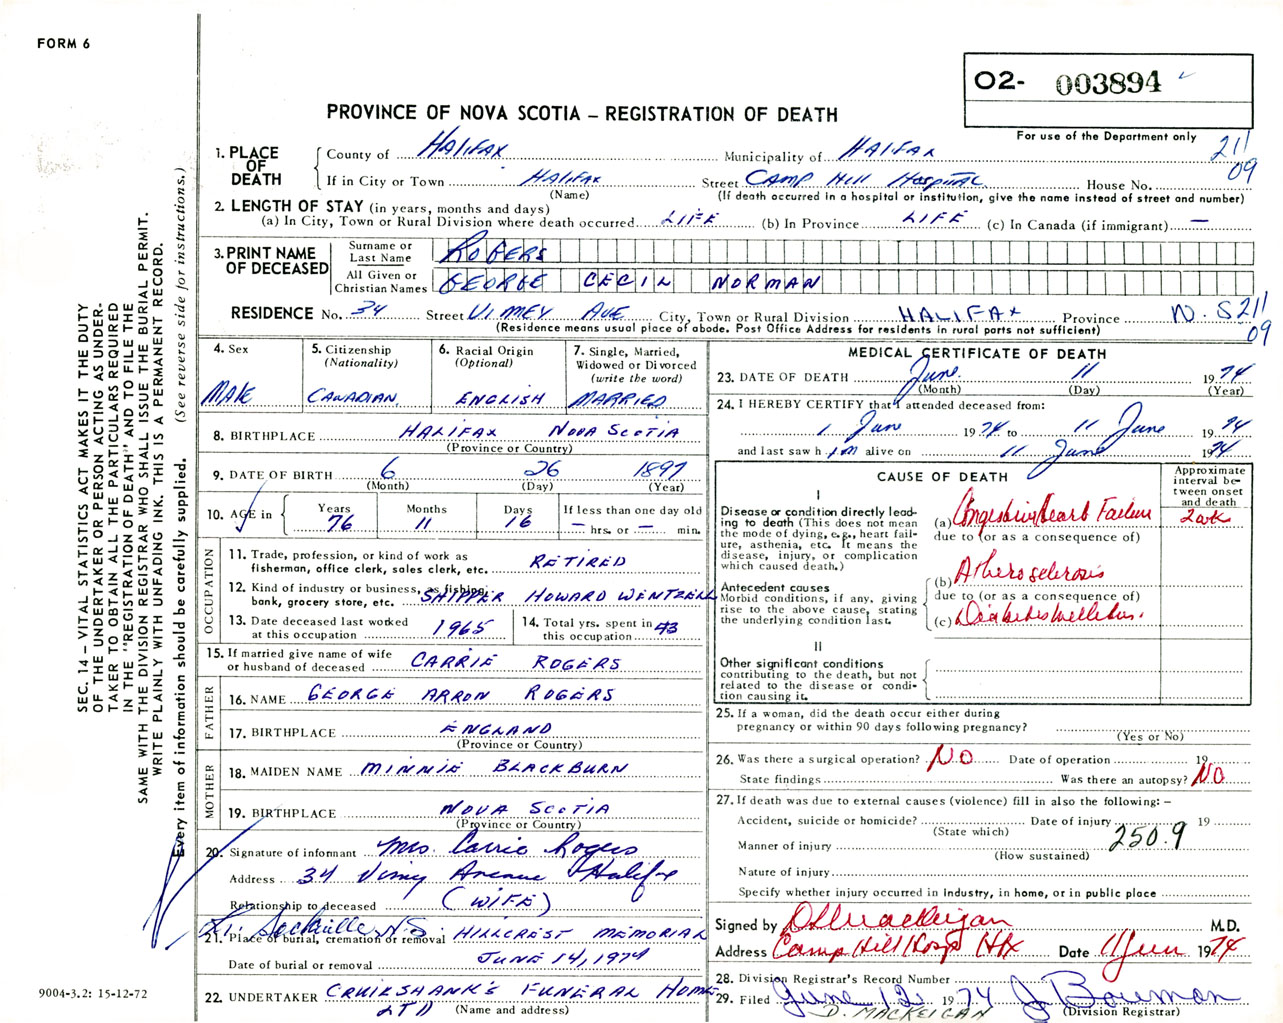 FORM 6
O2- 003894
For use of the Department only
PROVINCE OF NOVA SCOTIA – REGISTRATION OF DEATH
211
09
1. PLACE OF DEATH
County of Halifax Municipality of Halifax
If in City or Town Halifax Street Camp Hill Hospital House No.
(Name) (If death occurred in a hospital or institution, give the name instead of street and number)
2. LENGTH OF STAY (in years, months and days)
(a) In City, Town or Rural Division where death occurred LIFE (b) In Province LIFE (c) In Canada (if immigrant) —
3. PRINT NAME OF DECEASED
Surname or Last Name ROGERS
All Given or Christian Names GEORGE CECIL NORMAN
RESIDENCE No. 34 Street VIMEY AVE City, Town or Rural Division HALIFAX Province N.S 211
09
(Residence means usual place of abode. Post Office Address for residents in rural parts not sufficient)
4. Sex
MALE
5. Citizenship (Nationality)
CANADIAN
6. Racial Origin (Optional)
ENGLISH
7. Single, Married, Widowed or Divorced (write the word)
MARRIED
8. BIRTHPLACE HALIFAX NOVA SCOTIA
(Province or Country)
9. DATE OF BIRTH 6 26 1897
(Month) (Day) (Year)
10. AGE in Years 76 Months 11 Days 16 If less than one day old — hrs. or — min.
OCCUPATION
11. Trade, profession, or kind of work as fisherman, office clerk, sales clerk, etc. RETIRED
12. Kind of industry or business, as fishing, bank, grocery store, etc. SHIPPER HOWARD WENTZELL
13. Date deceased last worked at this occupation 1965
14. Total yrs. spent in this occupation 43
15. If married give name of wife or husband of deceased CARRIE ROGERS
FATHER
16. NAME GEORGE ARRON ROGERS
17. BIRTHPLACE ENGLAND
(Province or Country)
MOTHER
18. MAIDEN NAME MINNIE BLACKBURN
19. BIRTHPLACE NOVA SCOTIA
(Province or Country)
20. Signature of informant Mrs. Carrie Rogers
Address 34 Vimy Avenue Halifax
Relationship to deceased (WIFE)
Sackville N.S.
21. Place of burial, cremation or removal HILLCREST MEMORIAL
Date of burial or removal JUNE 14, 1974
22. UNDERTAKER CRUIKSHANK'S FUNERAL HOME
LTD
(Name and address)
MEDICAL CERTIFICATE OF DEATH
23. DATE OF DEATH June 11 1974
(Month) (Day) (Year)
24. I HEREBY CERTIFY that I attended deceased from:
1 June 1974 to 11 June 1974
and last saw him alive on 11 June 1974
CAUSE OF DEATH
Approximate interval between onset and death
I
Disease or condition directly leading to death (This does not mean the mode of dying, e.g., heart failure, asthenia, etc. It means the disease, injury, or complication which caused death.)
(a) Congestive Heart Failure 2 wk
due to (or as a consequence of)
Antecedent causes
Morbid conditions, if any, giving rise to the above cause, stating the underlying condition last.
(b) Atherosclerosis
due to (or as a consequence of)
(c) Diabetes mellitus.
II
Other significant conditions contributing to the death, but not related to the disease or condition causing it.
25. If a woman, did the death occur either during pregnancy or within 90 days following pregnancy?
(Yes or No)
26. Was there a surgical operation? NO Date of operation 19
State findings Was there an autopsy? NO
27. If death was due to external causes (violence) fill in also the following: –
Accident, suicide or homicide? Date of injury 19
(State which)
250.9
Manner of injury
(How sustained)
Nature of injury
Specify whether injury occurred in industry, in home, or in public place
Signed by D. MacKeigan M.D.
Address Camp Hill Hosp Hfx Date 11 Jun 1974
28. Division Registrar's Record Number
29. Filed June 12 1974 J Bowman
D. MACKEIGAN (Division Registrar)
SEC. 14 – VITAL STATISTICS ACT MAKES IT THE DUTY
OF THE UNDERTAKER OR PERSON ACTING AS UNDER-
TAKER TO OBTAIN ALL THE PARTICULARS REQUIRED
IN THE "REGISTRATION OF DEATH" AND TO FILE THE
SAME WITH THE DIVISION REGISTRAR WHO SHALL ISSUE THE BURIAL PERMIT.
WRITE PLAINLY WITH UNFADING INK. THIS IS A PERMANENT RECORD.
Every item of information should be carefully supplied. (See reverse side for instructions.)
9004-3.2: 15-12-72